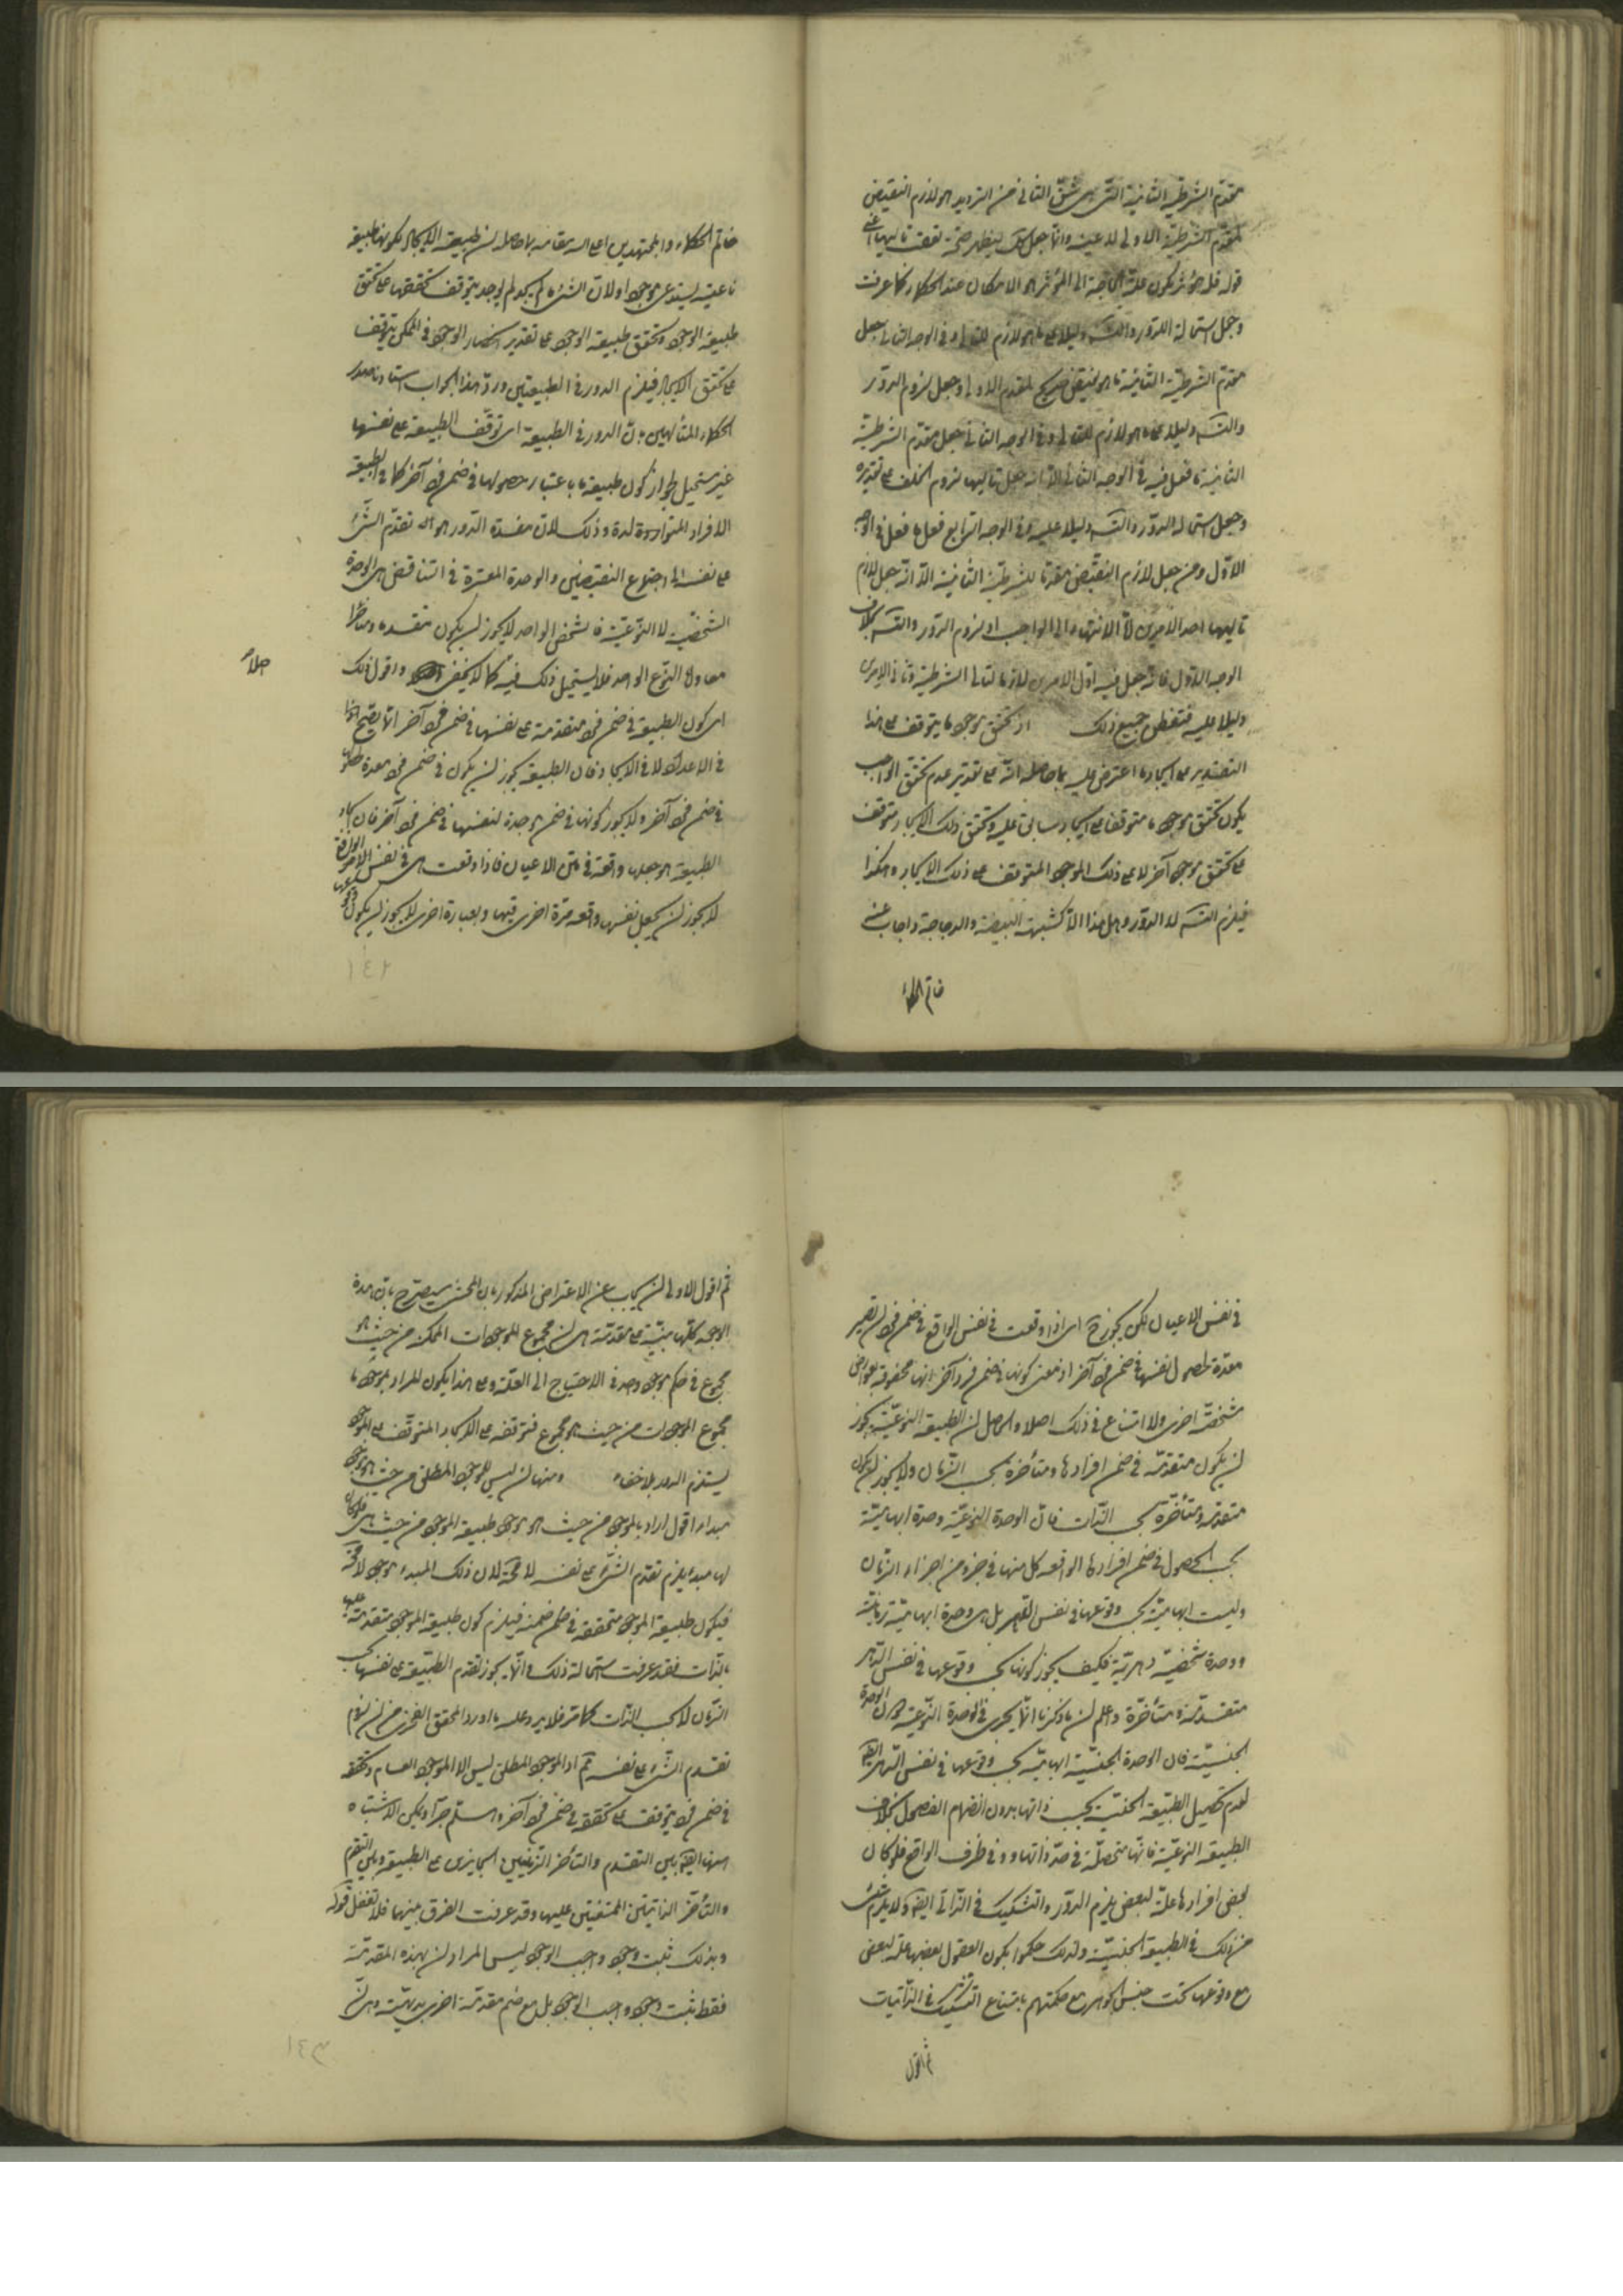 مقدّم الشرطيّة الثانية التى هى شقّ الثانى من الترديد هو لازم النقيض
لمقدّم الشرطيّة الاولى لا عينه وانّما جعل كك ليظهر صحّة تاليها
قوله فلا مؤثر يكون علّة الحاجة الى المؤثر هو الامكان عند الحكماء كما عرفت
وجعل استحالة الدّور والتّسه دليلا على ما هو لازم للتالى وفى الوجه الثانى جعل
مقدّم الشرطيّة الثانية ما هو نقيض صريح لمقدم الاولى وجعل لزوم الدّور
والتّسه دليلا على ما هو لازم للتالى وفى الوجه الثالث جعل مقدّم الشرطيّة
الثانية ما فعل فيه فى الوجه الثانى الّا انّه جعل تاليها لزوم الخلف على تقديره
وجعل استحالة الدّور والتّسه دليلا عليه وفى الوجه الرّابع فعل ما فعل فى الوجه
الاوّل ومن جعل لازم النقيض مقدّما للشرطيّة الثانية الّا انّه جعل لازم
تاليها احد الامرين امّا الانتهاء الى الواجب او لزوم الدّور والتّسه بخلاف
الوجه الاوّل فانّه جعل فيه اوّل الامرين لازما لتالى الشرطية وثانى الامرين
دليلا عليه فتفطن جميع ذلك اذ تحقق موجود ما يتوقف على هذا
التقدير على ايجاد ما اعترض عليه بما حاصله انّه على تقدير عدم تحقق الواجب
يكون تحقق موجود ما متوقفا على ايجاد سابق عليه وتحقق ذلك الايجاد يتوقف
على تحقق موجود آخر لا على ذلك الموجود المتوقف على ذلك الايجاد وهكذا
فيلزم التّسه لا الدّور وهل هذا الّا كشبهة البيضة والدجاجة واجاب عنه
خاتم الحكماء
خاتم الحكماء والمجتهدين اعلى الله مقامه بما حاصله ان طبيعة الايجاد لكونها طبيعة
ناعتية يستدعى موجودا ولانّ الشىء ما لم يجد لم يوجد يتوقف تحققها على تحقق
طبيعة الوجود وتحقق طبيعة الوجود على تقدير انحصار الوجود فى الممكن يتوقف
على تحقق الايجاد فيلزم الدور فى الطبيعتين وردّ هذا الجواب استادنا صدر
الحكماء المتألهين بانّ الدور فى الطبيعة اى توقّف الطبيعة على نفسها
غير مستحيل لجواز كون طبيعة ما باعتبار حصولها فى ضمن فرد آخر كما فى طبيعة
الافراد المتواردة وذلك لانّ مفسدة الدّور هو انه تقدّم الشّىء
على نفسه اى اجتماع النقيضين والوحدة المعتبرة فى التناقض هى الوحدة
الشخصيّة لا النّوعيّة فالشخص الواحد لا يجوز ان يكون متقدما ومتأخرا
معا وامّا النّوع الواحد فلا يستحيل ذلك فيه كما لا يخفى واقول ذلك
اصلا
اى كون الطبيعة فى ضمن فرد متقدمة على نفسها فى ضمن فرد آخر انّما يصحّ
فى الاعداد لا فى الايجاد فان الطبيعة يجوز ان يكون فى ضمن فرد معدة
فى ضمن فرد آخر ولا يجوز كونها فى ضمن موجدة لنفسها فى ضمن فرد آخر فان ايجاد
الطبيعة هو جعلها واقعة فى متن الاعيان فاذا وقعت هى فى نفس الامر
لا يجوز ان يجعل نفسها واقعة مرّة اخرى فيها وبعبارة اخرى لا يجوز ان يكون
١٤٢
فى نفس الاعيان لكن يجوز ح اى اذا وقعت فى نفس الواقع فى ضمن فرد ان تصير
معدّة لحصول نفسها فى ضمن فرد آخر اذ معنى كونها فى ضمن فرد آخر انها محفوفة بعوارض
مشخصّة اخرى ولا امتناع فى ذلك اصلا والحاصل ان الطبيعة النوعيّة يجوز
ان يكون متقدّمة فى ضمن افرادها ومتأخرة بحسب الزّمان ولا يجوز ان يكون
متقدمة ومتأخّرة بحسب الذّات فانّ الوحدة النّوعيّة وحدة ابهاميّة
بحسب الحصول فى ضمن افرادها الواقعة كل منها فى جزء من اجزاء الزّمان
وليست ابهاميّة بحسب وقوعها فى نفس الدّهر بل هى وحدة ابهاميّة زمانيّة
ووحدة شخصيّة دهريّة فكيف يجوز كونها بحسب وقوعها فى نفس الدّهر
متقدّمة ومتأخّرة واعلم ان ما ذكرنا انّما يجرى فى الوحدة النّوعيّة دون الوحدة
الجنسيّة فان الوحدة الجنسيّة ابهاميّة بحسب وقوعها فى نفس الدّهر ايضا
لعدم تحصيل الطبيعة الجنسيّة بحسب ذاتها بدون انضمام الفصول بخلاف
الطبيعة النّوعيّة فانّها متحصّلة فى حدّ ذاتها وفى ظرف الواقع فلو كان
بعض افرادها علّة لبعض يلزم الدّور والتشكيك فى الذّاتى ايضا ولا يلزم شىء
من ذلك فى الطبيعة الجنسيّة ولذلك حكموا بكون العقول بعضها علّة لبعض
مع وقوعها تحت جنس الجوهر مع حكمهم بامتناع التشكيك فى الذّاتيات
ثم اقول
ثم اقول الاولى ان يجاب عن الاعتراض المذكور بان المحشى سيصرّح بان هذه
الوجوه كلّها مبنيّة على مقدّمة هى ان مجموع الموجودات الممكنة من حيث هو
مجموع فى حكم موجود واحد فى الاحتياج الى العلّة وعلى هذا يكون المراد بموجود ما
مجموع الموجودات من حيث هو مجموع فتوقفه على الايجاد المتوقّف على الموجود
يستلزم الدور بلا خفاء ومنها ان ليس للموجود المطلق من حيث هو موجود
مبدأ اقول اراد بالموجود من حيث هو موجود طبيعة الموجود من حيث هى فلو كان
لها مبدء يلزم تقدّم الشىء على نفسه لا محة لان ذلك المبدء موجود لا محة
فيكون طبيعة الموجود متحققة فى ضمنه فيلزم كون طبيعة الموجود متقدمة عليها
بالذّات فقد عرفت استحالة ذلك وانّما يجوز تقدم الطبيعة على نفسها بحسب
الزّمان لا بحسب الذّات كما مرّ فلا يرد عليه ما اورد المحقق الفخرى من ان لزوم
تقدم الشىء على نفسه ثم اذ الموجود المطلق ليس الا الموجود العام وتحققه
فى ضمن فرد يتوقف على تحققه فى ضمن فرد آخر وهلم جرّا ولكن الاشتباه
هيهنا ايضا بين التقدم والتأخر الزّمانيين الجايزين على الطبيعة وبين التقدم
والتأخر الذاتيّين الممتنعين عليها وقد عرفت الفرق بينهما فلا تغفل قوله
وبذلك ثبت وجود واجب الوجود ليس المراد ان بهذه المقدّمة
فقط يثبت وجود واجب الوجود بل مع ضم مقدّمة اخرى بديهيّة وهى انّ
١٤٣